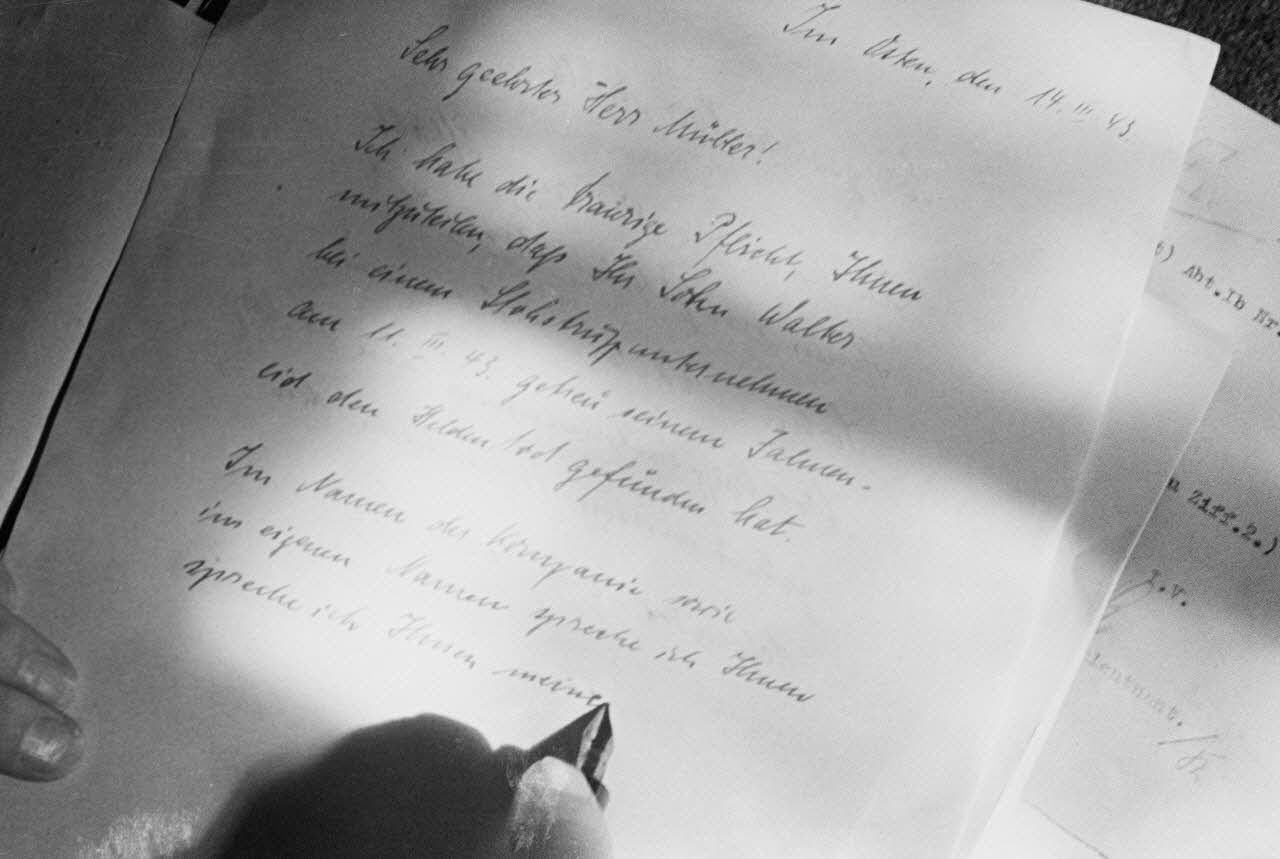 Im Osten, den 14. III 43.
Sehr geehrter Herr Müller!
Ich habe die traurige Pflicht, Ihnen
mitzuteilen, daß Ihr Sohn Walter
bei einem Stoßtruppunternehmen
am 11. III. 43. getreu seinem Fahnen-
eid den Heldentod gefunden hat.
Im Namen der Kompanie sowie
im eigenen Namen spreche ich Ihnen
spreche ich Ihnen meine
) Abt.Ib Nr.
Ziff.2.)
I.V.